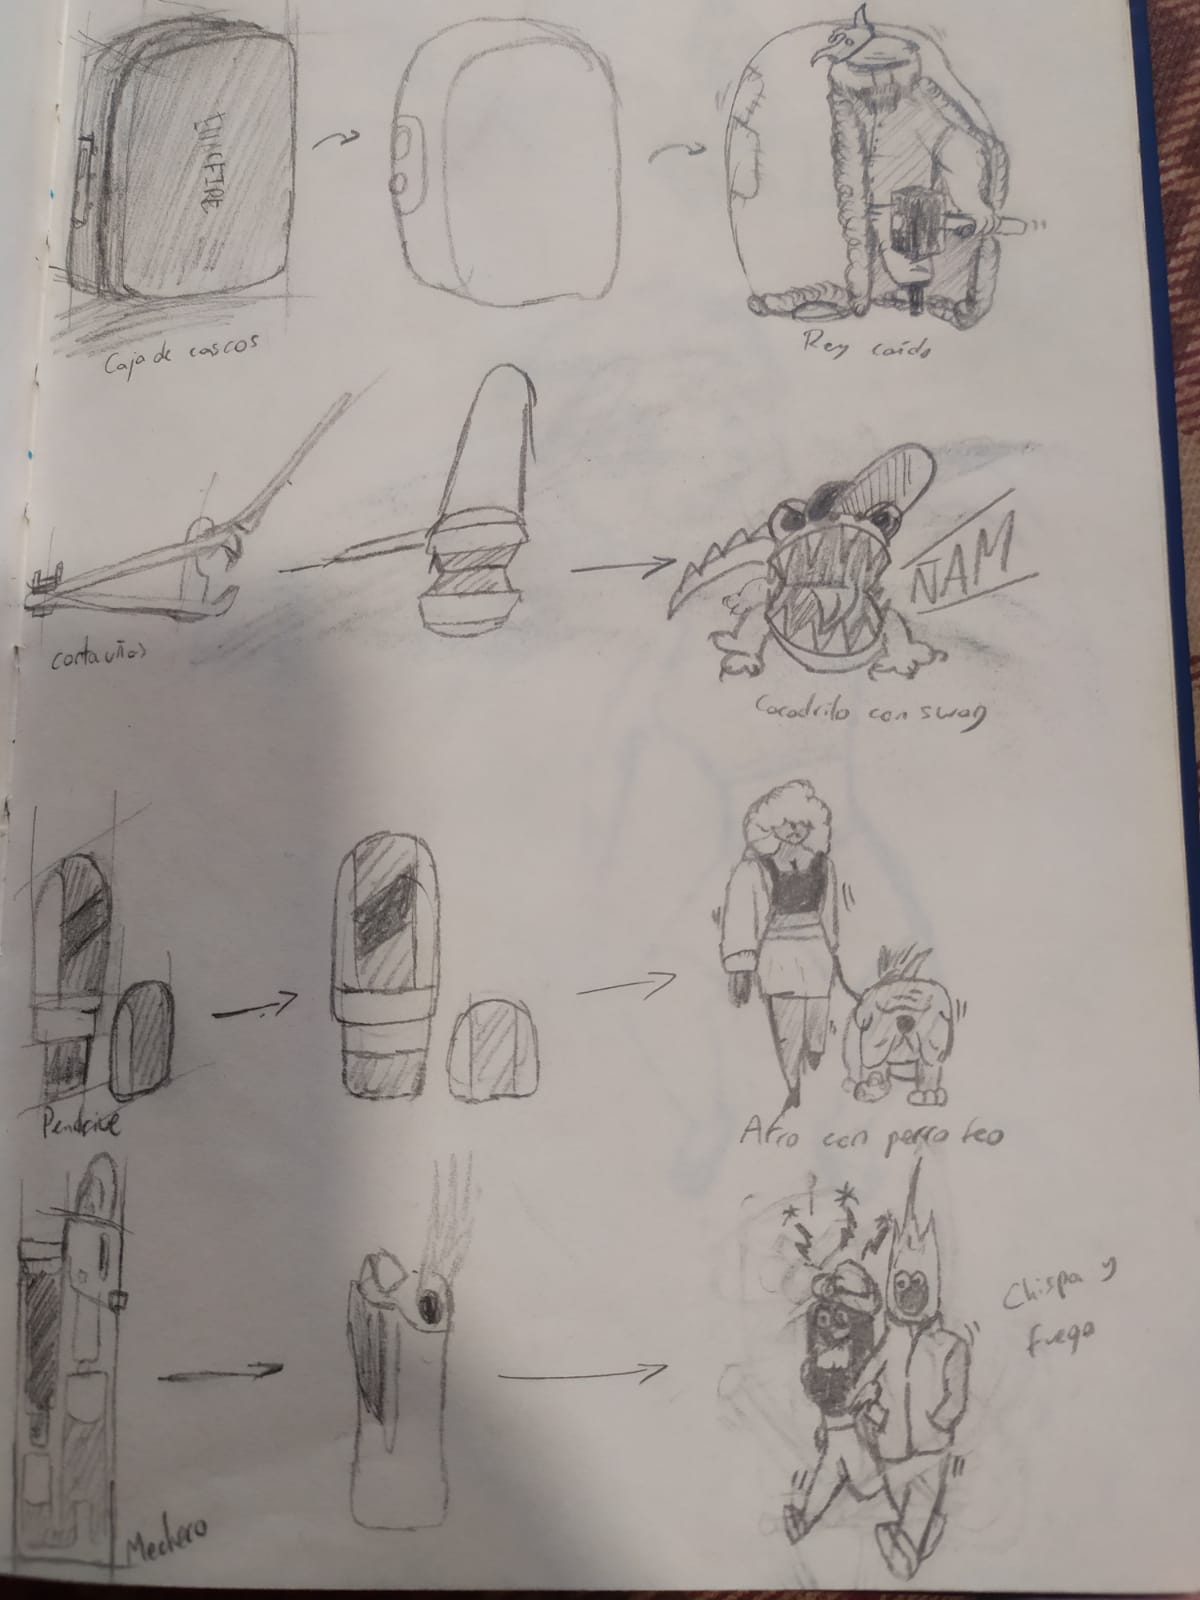 Caja de cascos
Rey caído
ÑAM
cortauñas
Cocodrilo con swag
Pendrive
Afro con perro feo
Chispa y
fuego
Mechero